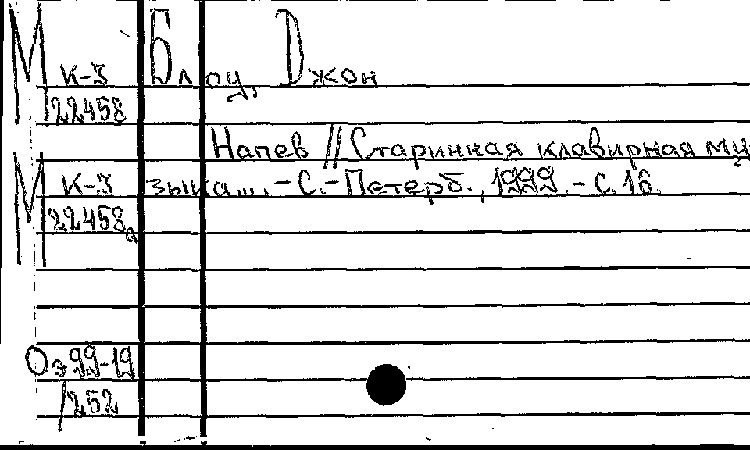 М к-3 Блоу, Джон
22458
Напев // Старинная клавирная му
М к-3 зыка... - С.-Петерб., 1999. - С. 16.
22458а
Оэ 99-19
/252